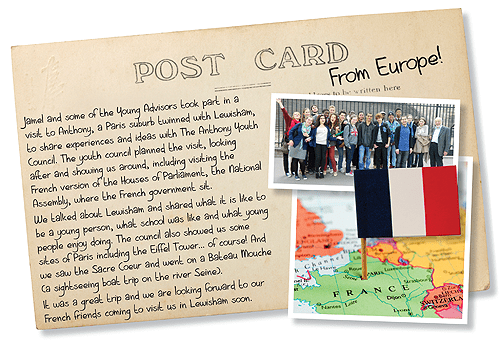 POST CARD
From Europe!
to be written here
Jamel and some of the Young Advisors took part in a
visit to Anthony, a Paris suburb twinned with Lewisham,
to share experiences and ideas with The Anthony Youth
Council. The youth council planned the visit, looking
after and showing us around, including visiting the
French version of the Houses of Parliament, the National
Assembly, where the French government sit.
We talked about Lewisham and shared what it is like to
be a young person, what school was like and what young
people enjoy doing. The council also showed us some
sites of Paris including the Eiffel Tower... of course! And
we saw the Sacre Coeur and went on a Bateau Mouche
(a sightseeing boat trip on the river Seine).
It was a great trip and we are looking forward to our
French friends coming to visit us in Lewisham soon.
Channel
PARIS
Strasbourg
FRANCE
Nantes
Dijon
Bern
SWITZERLA
Lyon